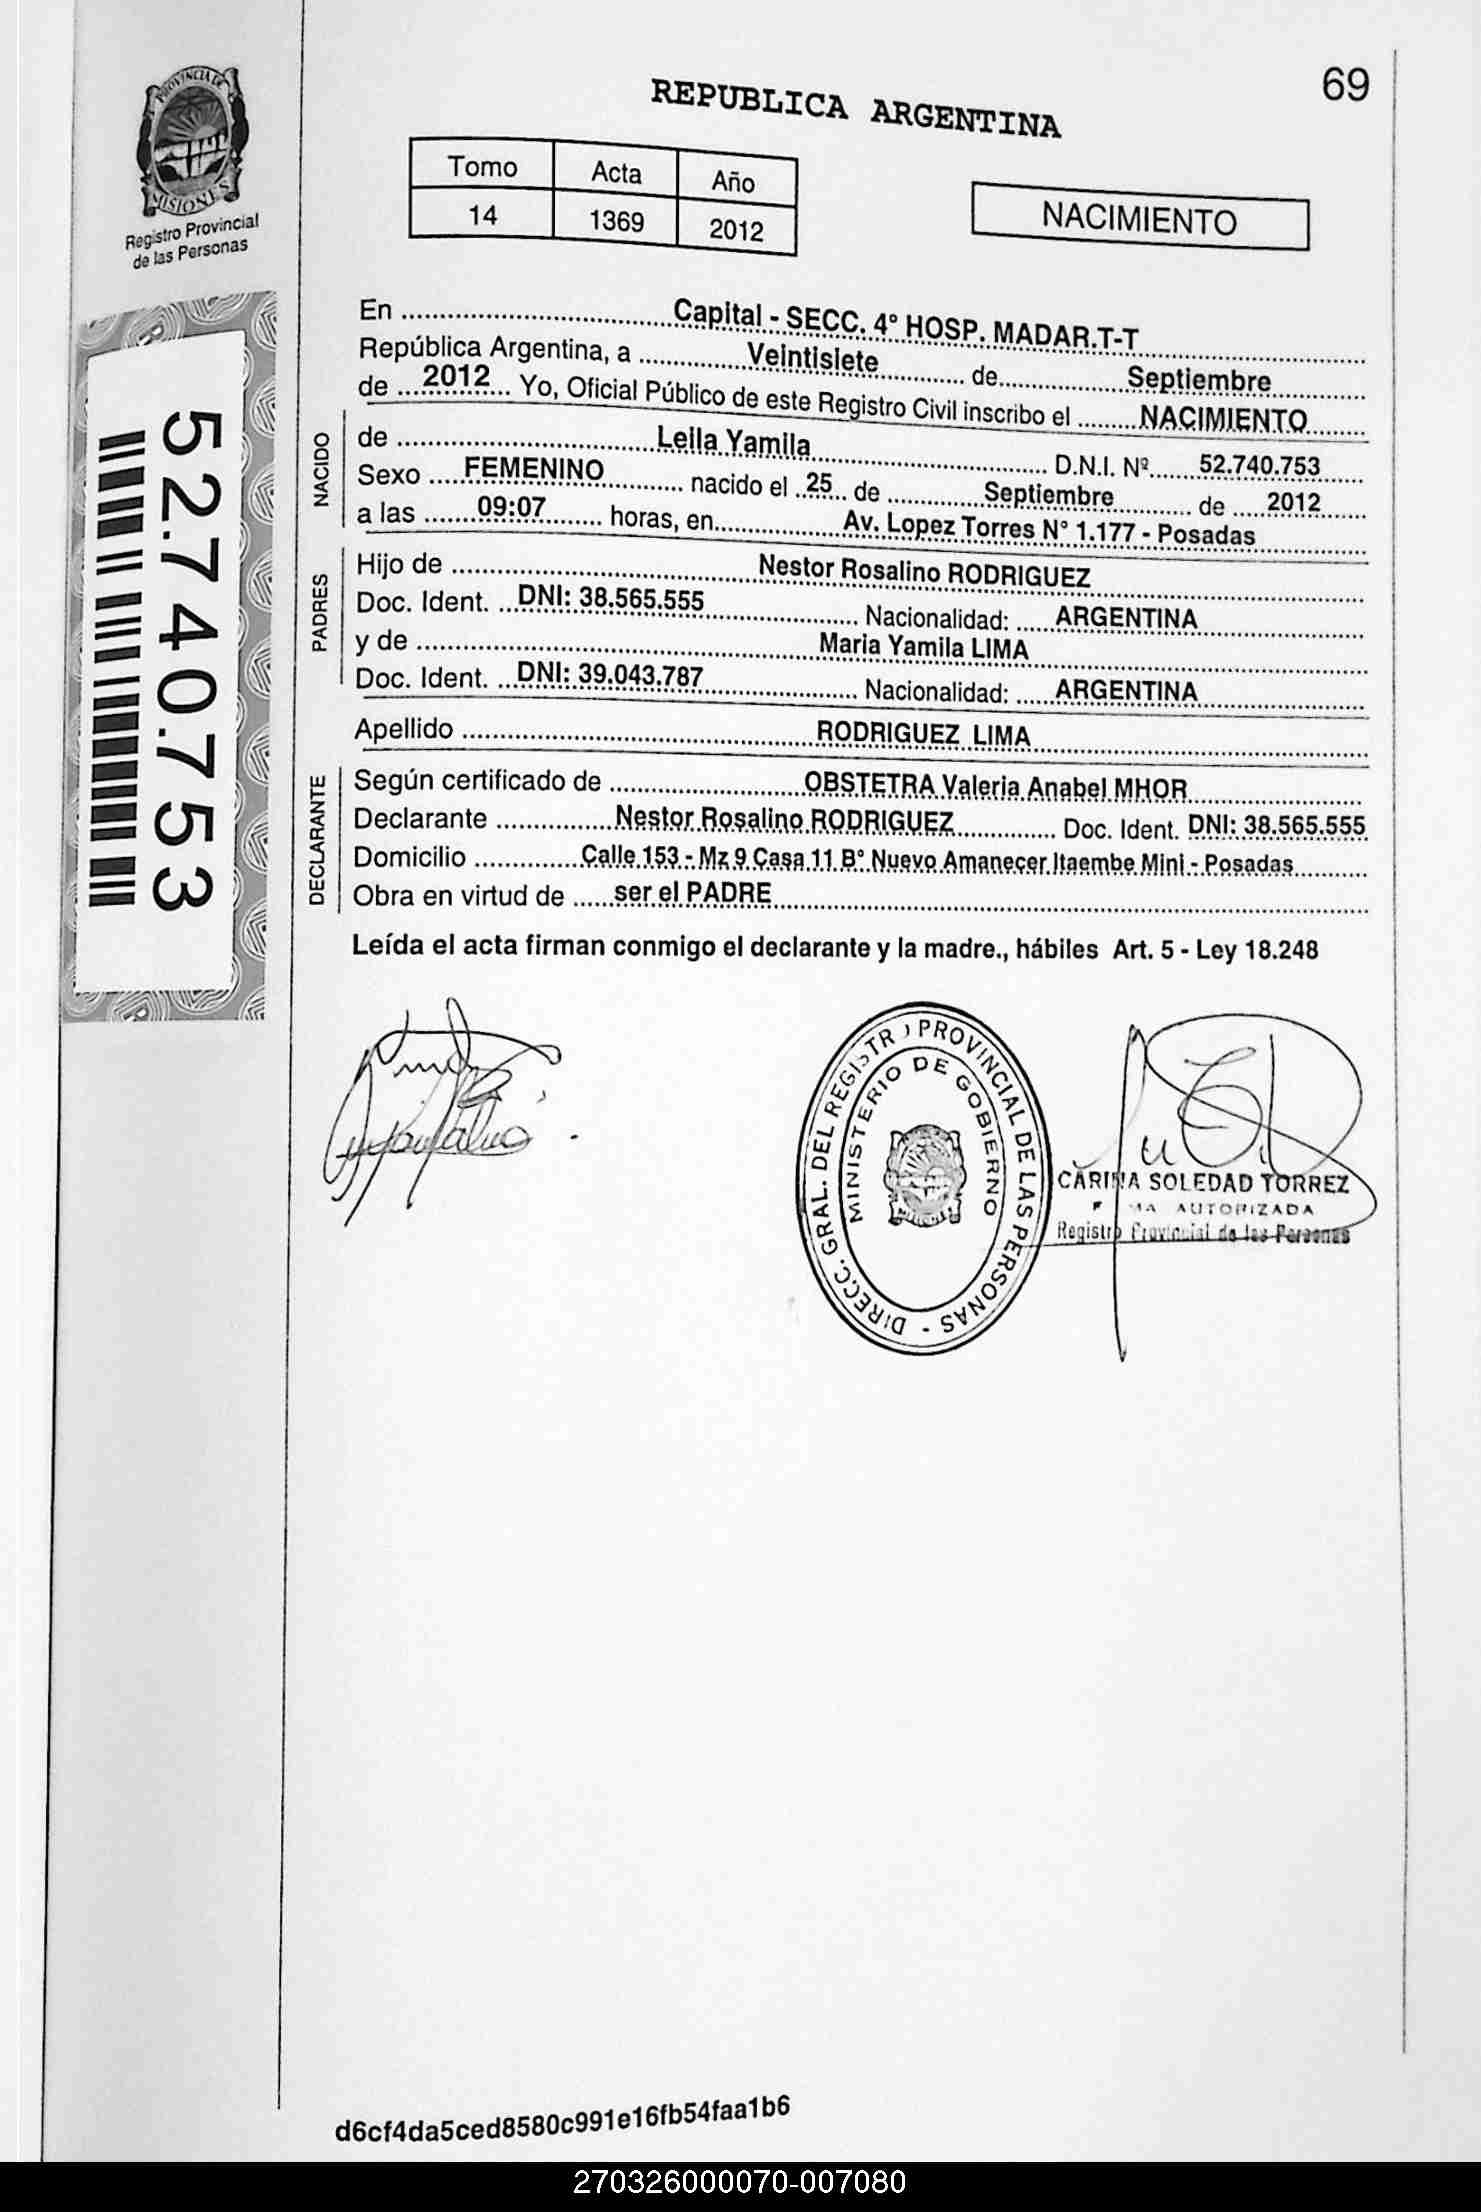 69
PROVINCIA DE
MISIONES
Registro Provincial
de las Personas
REPUBLICA ARGENTINA
Tomo Acta Año
14 1369 2012
NACIMIENTO
52.740.753
En ........ Capital - SECC. 4° HOSP. MADAR.T-T ........
República Argentina, a ........ Veintisiete ........ de ........ Septiembre ........
de ... 2012 ... Yo, Oficial Público de este Registro Civil inscribo el ........ NACIMIENTO ........
NACIDO
de ........ Leila Yamila ........ D.N.I. Nº ...... 52.740.753 ......
Sexo ..... FEMENINO ........ nacido el .. 25 .. de ........ Septiembre ........ de .... 2012 ......
a las ....... 09:07 ........ horas, en ........ Av. Lopez Torres N° 1.177 - Posadas ........
PADRES
Hijo de ........ Nestor Rosalino RODRIGUEZ ........
Doc. Ident. ... DNI: 38.565.555 ........ Nacionalidad: ..... ARGENTINA ........
y de ........ Maria Yamila LIMA ........
Doc. Ident. ... DNI: 39.043.787 ........ Nacionalidad: ..... ARGENTINA ........
Apellido ........ RODRIGUEZ LIMA ........
DECLARANTE
Según certificado de ........ OBSTETRA Valeria Anabel MHOR ........
Declarante ........ Nestor Rosalino RODRIGUEZ ........ Doc. Ident. DNI: 38.565.555
Domicilio ........ Calle 153 - Mz 9 Casa 11 B° Nuevo Amanecer Itaembe Mini - Posadas ........
Obra en virtud de ...... ser el PADRE ........
Leída el acta firman conmigo el declarante y la madre., hábiles Art. 5 - Ley 18.248
DIRECC. GRAL. DEL REGISTRO PROVINCIAL DE LAS PERSONAS -
MINISTERIO DE GOBIERNO
CARINA SOLEDAD TORREZ
AUTORIZADA
Registro Provincial de las Personas
d6cf4da5ced8580c991e16fb54faa1b6
270326000070-007080